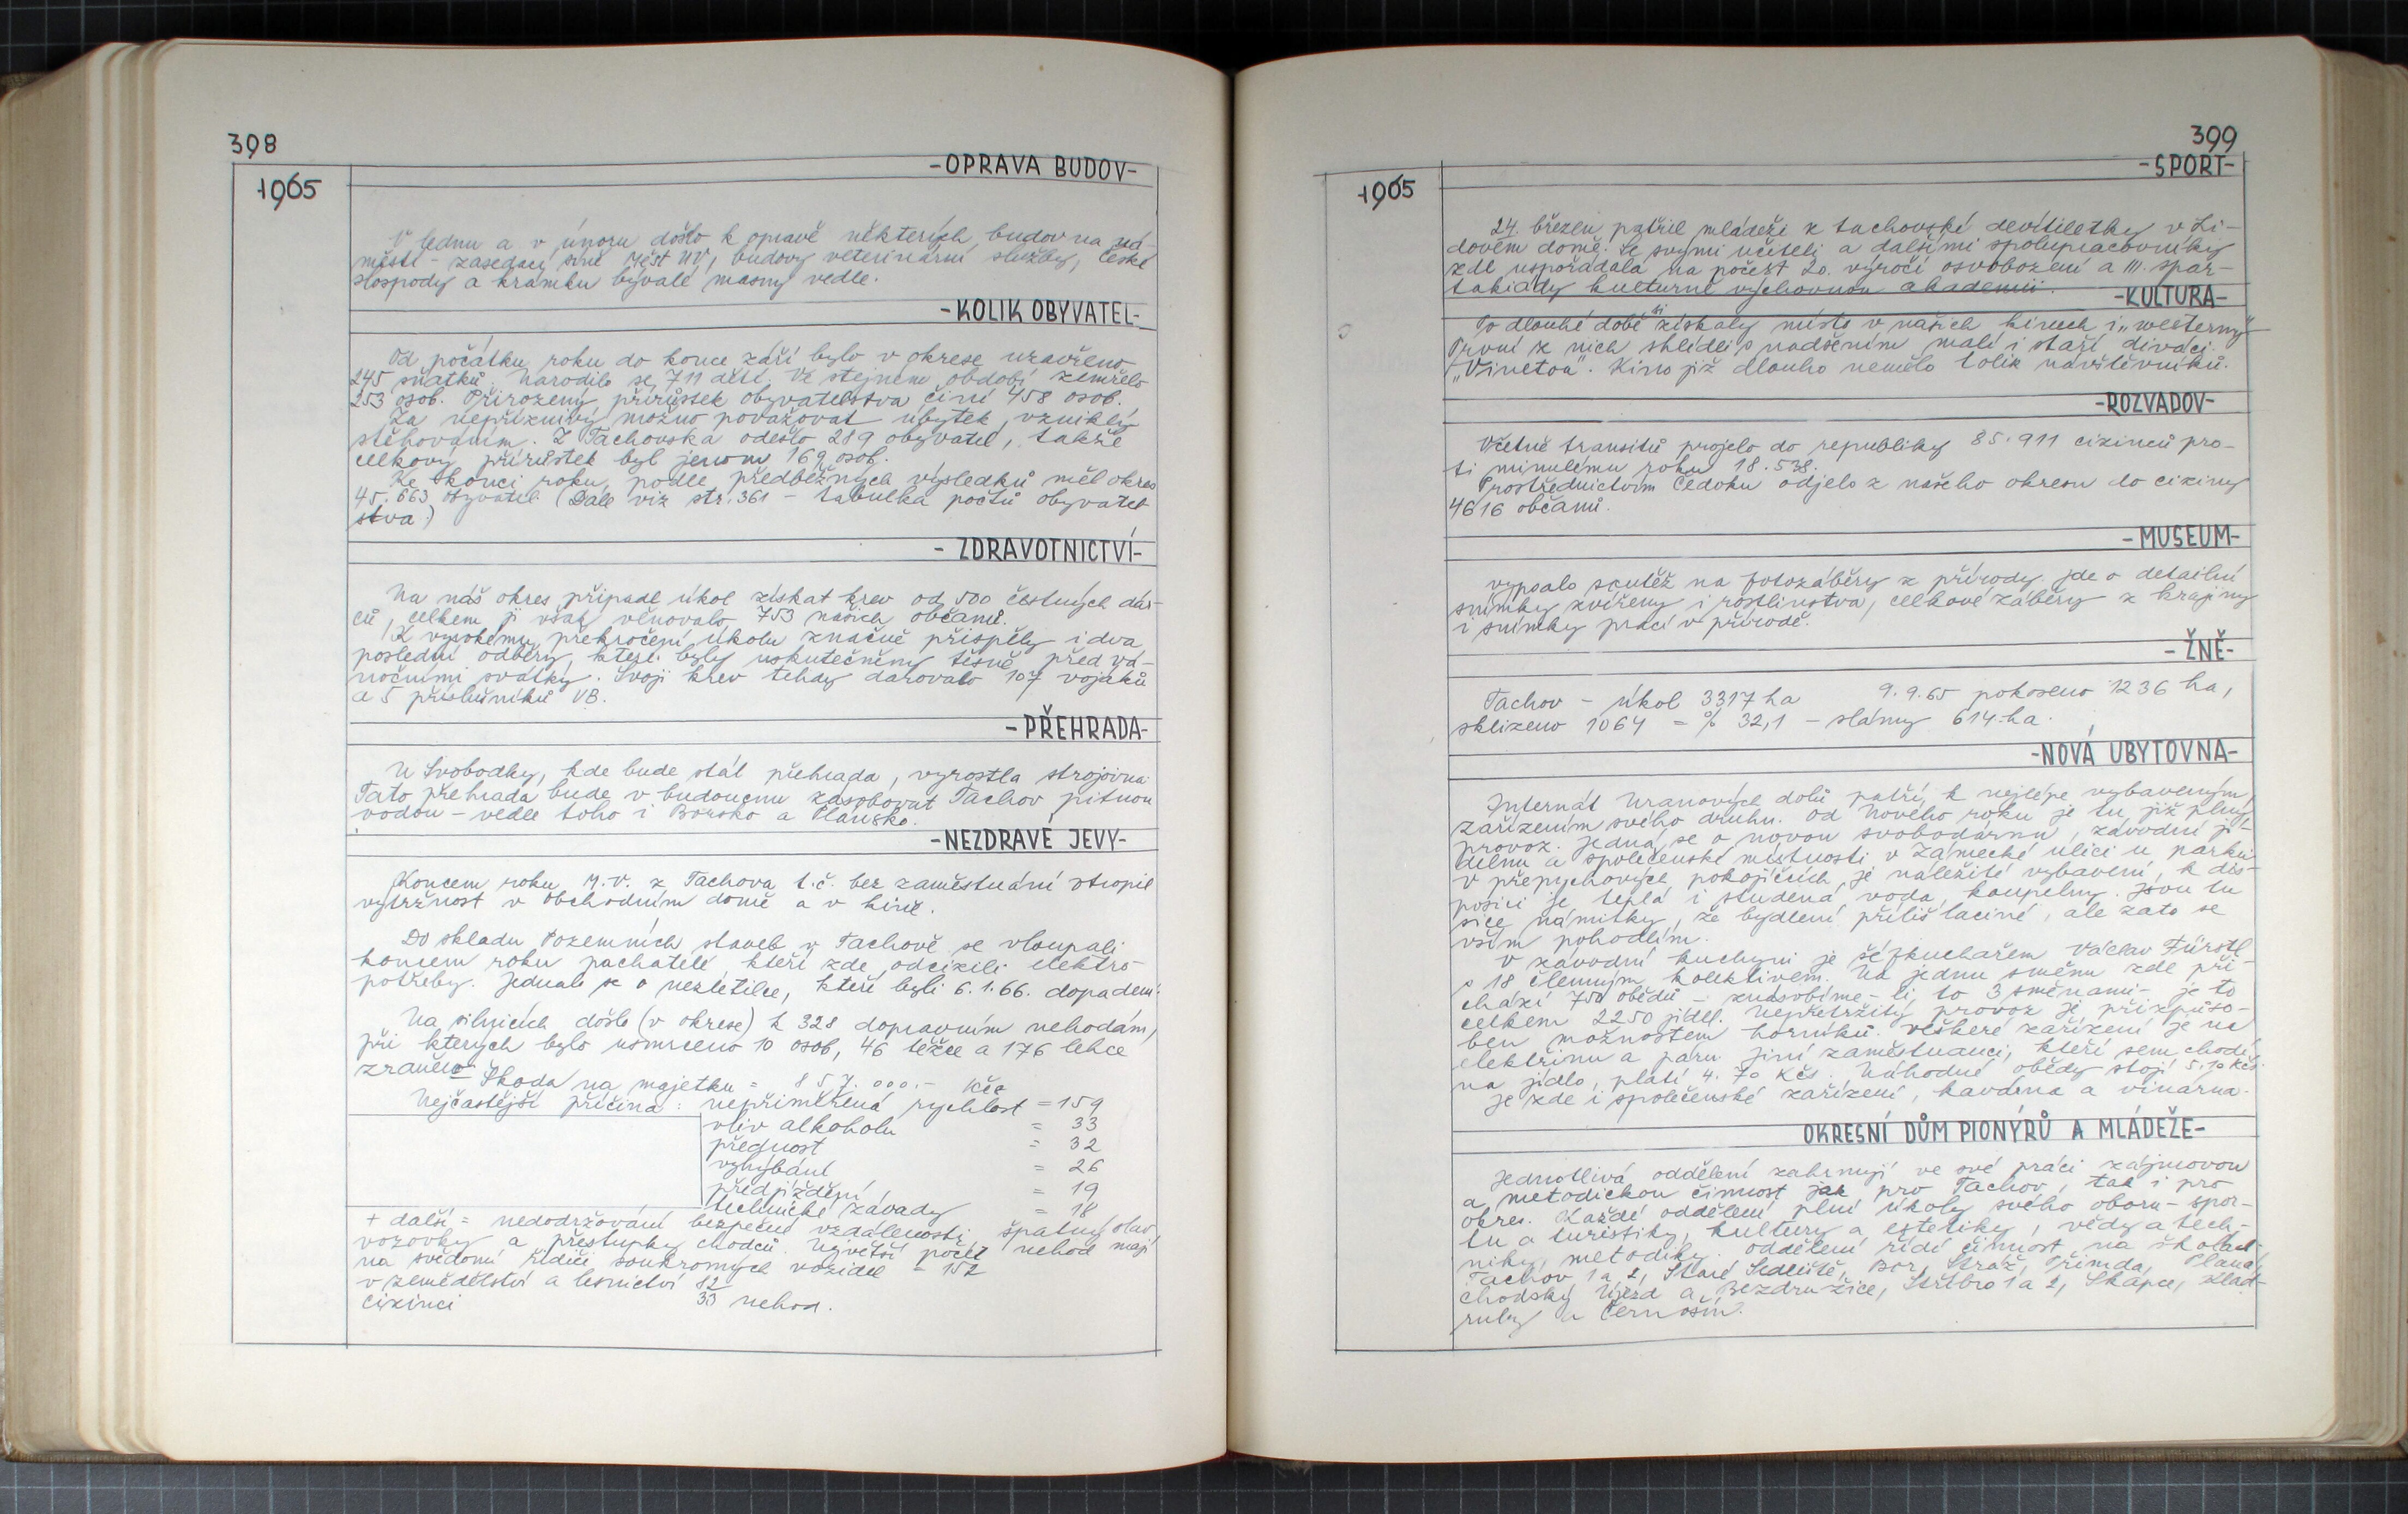 398
-OPRAVA BUDOV-
1965
V lednu a v únoru došlo k opravě některých budov na ná-
městí - zasedací síně Měst NV, budovy veterinární služby, České
hospody a krámku bývalé masny vedle.
-KOLIK OBYVATEL-
Od počátku roku do konce září bylo v okrese uzavřeno
245 sňatků. Narodilo se 711 dětí. Ve stejném období zemřelo
253 osob. Přirozený přírůstek obyvatelstva činí 458 osob.
Za nepříznivý možno považovat úbytek, vzniklý
stěhováním. Z Tachovska odešlo 289 obyvatel, takže
celkový přírůstek byl jenom 169 osob.
Ke konci roku, podle předběžných výsledků měl okres
45.663 obyvatel (Dále viz str. 361 - tabulka počtů obyvatel
stva.)
- ZDRAVOTNICTVÍ-
Na náš okres připadl úkol získat krev od 500 čestných dár-
ců, celkem ji však věnovalo 753 našich občanů.
K vysokému překročení úkolu značně přispěly i dva
poslední odběry, které byly uskutečněny těsně před vá-
nočními svátky. Svoji krev tehdy darovalo 107 vojáků
a 5 příslušníků VB.
-PŘEHRADA-
U Svobodky, kde bude stát přehrada, vyrostla strojovna.
Tato přehrada bude v budoucnu zásobovat Tachov pitnou
vodou - vedle toho i Borsko a Plánsko.
-NEZDRAVÉ JEVY-
Koncem roku M.V. z Tachova t.č. bez zaměstnání ztropil
výtržnost v obchodním domě a v kině.
Do skladu Pozemních staveb v Tachově se vloupali
koncem roku pachatelé, kteří zde odcizili elektro-
potřeby. Jednalo se o nezletilce, kteří byli 6.1.66. dopadeni.
Na silnicích došlo (v okrese) k 328 dopravním nehodám,
při kterých bylo usmrceno 10 osob, 46 těžce a 176 lehce
zraněno. Škoda na majetku = 857.000.- Kčs
Nejčastější příčina: nepřiměřená rychlost = 159
vliv alkoholu = 33
přednost = 32
vyhýbání = 26
předjíždění = 19
technické závady = 18
+ další = nedodržování bezpečné vzdálenosti, špatný stav
vozovky a přestupky chodců. Největší počet nehod mají
na svědomí řidiči soukromých vozidel = 152
v zemědělství a lesnictví 82
cizinci 33 nehod.
399
-SPORT-
1965
24. březen patřil mládeži z tachovské devítiletky v Li-
dovém domě. Se svými učiteli a dalšími spolupracovníky
zde uspořádala na počest 20. výročí osvobození a III. spar-
takiády kulturně výchovnou akademii.
-KULTURA-
Po dlouhé době si získaly místo v našich kinech i "westerny"
První z nich shlédli s nadšením malí i staří diváci
"Vinetoa". Kino již dlouho nemělo tolik návštěvníků.
-ROZVADOV-
Včetně transitů projelo do republiky 85.911 cizinců pro-
ti minulému roku 18.538.
Prostřednictvím Čedoku odjelo z našeho okresu do ciziny
4616 občanů.
-MUSEUM-
vypsalo soutěž na fotozáběry z přírody. Jde o detailní
snímky zvířeny i rostlinstva, celkové záběry z krajiny
i snímky prací v přírodě.
- ŽNĚ-
Tachov - úkol 3317 ha 9.9.65 pokoseno 1236 ha,
sklizeno 1064 = % 32,1 - slámy 614 ha.
-NOVÁ UBYTOVNA-
Internát Uranových dolů patří k nejlépe vybaveným
zařízením svého druhu. Od Nového roku je tu již plný
provoz. Jedná se o novou svobodárnu, závodní jí-
delnu a společenské místnosti v Zámecké ulici u parku.
V přepychových pokojíčcích je náležité vybavení, k dis-
posici je teplá i studená voda, koupelny. Jsou tu
sice námitky, že bydlení příliš laciné, ale zato se
vším pohodlím.
V závodní kuchyni je šéfkuchařem Václav Fürstl
s 18 členným kolektivem. Na jednu směnu zde při-
chází 750 obědů - znásobíme-li to 3 směnami - je to
celkem 2250 jídel. Nepřetržitý provoz je přizpůso-
ben možnostem horníků. Veškeré zařízení je na
elektřinu a páru. Jiní zaměstnanci, kteří sem chodí
na jídlo, platí 4.70 Kčs. Náhodné obědy stojí 5.10 Kčs.
Je zde i společenské zařízení, kavárna a vinárna.
OKRESNÍ DŮM PIONÝRŮ A MLÁDEŽE-
Jednotlivá oddělení zahrnují ve své práci zájmovou
a metodickou činnost jak pro Tachov, tak i pro
okres. Každé oddělení plní úkoly svého oboru - spor-
tu a turistiky, kultury a estetiky, vědy a tech-
niky, metodiky. Oddělení řídí činnost na školách
Tachov 1 a 2, Staré Sedliště, Bor, Stráž, Přimda, Planá,
Chodský Újezd a Bezdružice, Stříbro 1 a 2, Skapce, Klad-
ruby a Černošín.